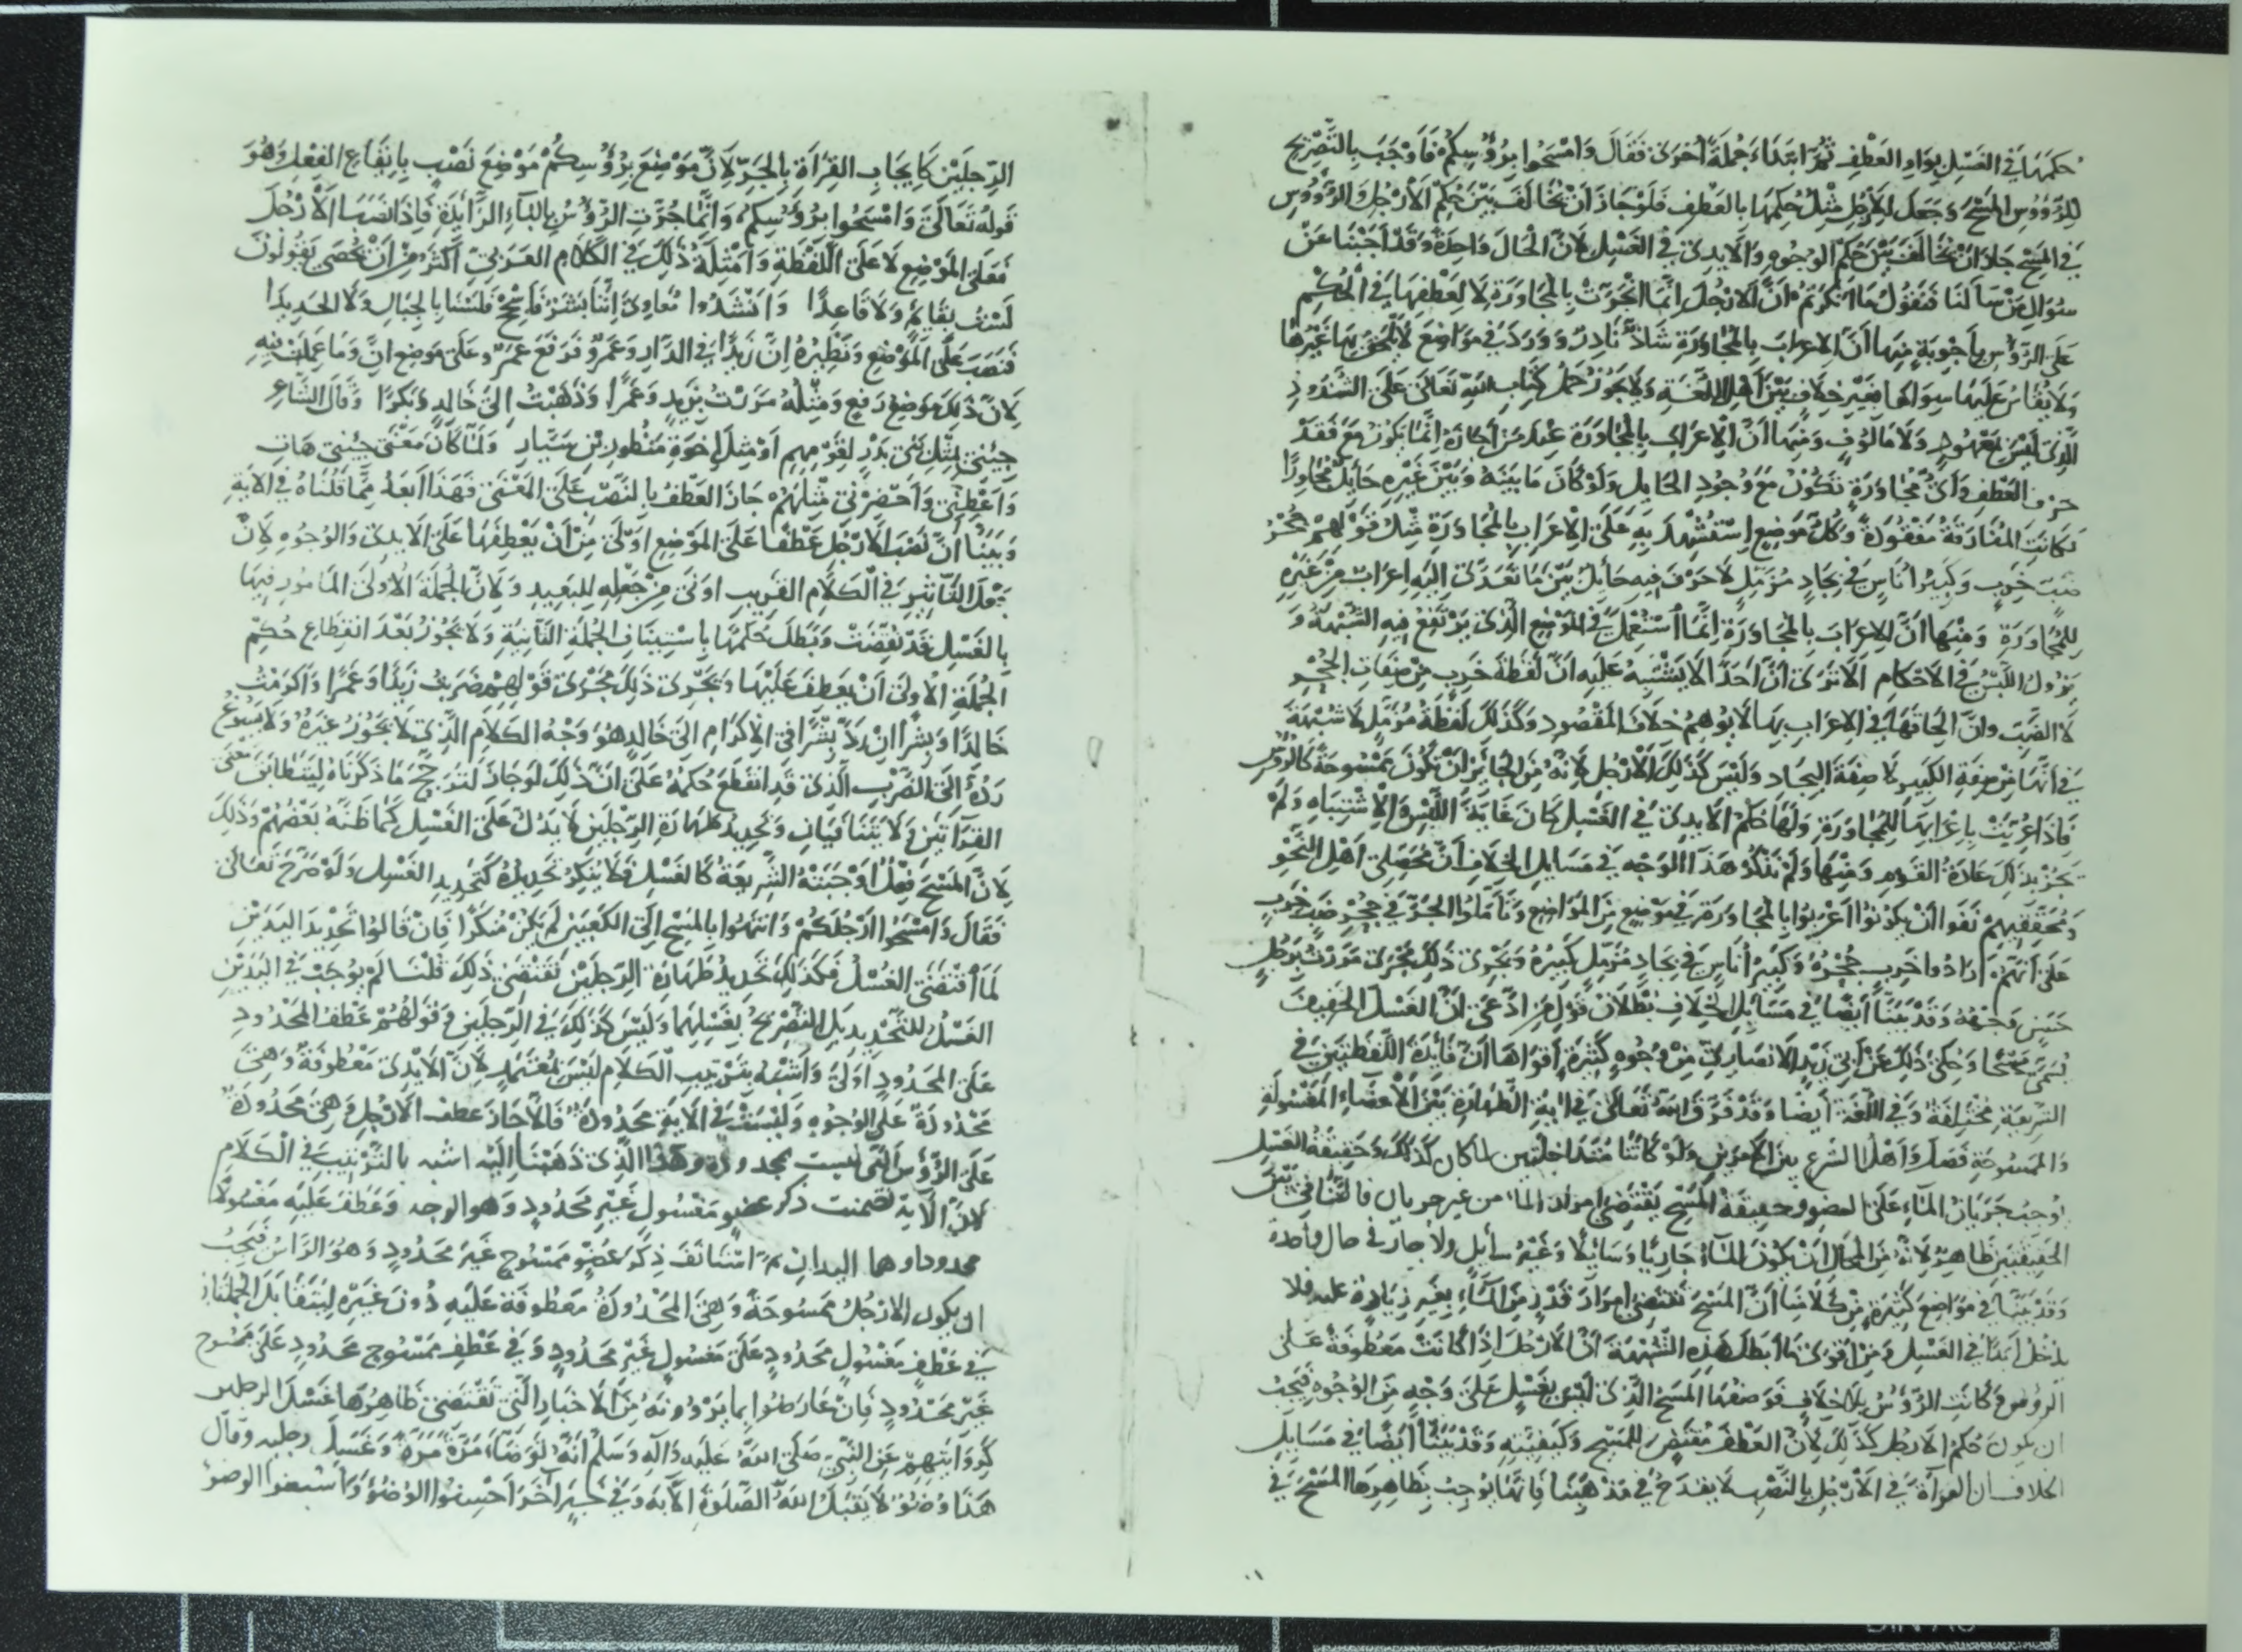 حكمها في الغسل بواو العطف ثم ابتداء جملة أخرى فقال وامسحوا برؤسكم فأوجب بالتصريح
للرؤوس المسح وجعل للأرجل مثل حكمها بالعطف فلو جاز أن نخالف بين حكم الأرجل والرؤوس
في المسح جاز أن نخالف بين حكم الوجوه والأيدي في الغسل لأن الحال واحدة وقد أجبنا عن
سؤال من سألنا فنقول ما أنكرتم أن الأرجل إنما انجرت بالمجاورة لا لعطفها في الحكم
على الرؤس بأجوبة منها أن الإعراب بالمجاورة شاذ نادر وورد في مواضع لا يلحق بها غيرها
ولا يقاس عليها سواها بغير خلاف بين أهل اللغة ولا يجوز حمل كتاب الله تعالى على الشذوذ
الذي ليس بمعهود ولا مألوف ومنها أن الإعراب بالمجاورة عند من أجازه إنما يكون مع فقد
حرف العطف وأي مجاورة تكون مع وجود الحايل ولو كان ما بينه وبين غيره حايل مجاورا
لكانت المفارقة مفقودة وكل موضع استشهد به على الإعراب بالمجاورة مثل قولهم جحر
ضب خرب وكبير أناس في بجاد مزمل لا حرف فيه حائل بين ما تعدى إليه إعراب من غيره
للمجاورة ومنها أن الإعراب بالمجاورة إنما استعمل في الموضع الذي يرتفع فيه الشبهة و
يزول اللبس في الأحكام ألا ترى أن أحدا لا يشتبه عليه أن لفظة خرب من صفات الجحر
لا الضب وأن إلحاقها في الإعراب بها لا يوهم خلاف المقصود وكذلك لفظة مزمل لا شبهة
في أنها من صفة الكبير لا صفة البجاد وليس كذلك الأرجل لأنه من الجائز أن تكون ممسوحة كالرؤس
فإذا أعربت بإعرابها للمجاورة ولها حكم الأيدي في الغسل كان غاية اللبس والإشتباه ولم
تجر بذلك عادة القوم ومنها ولم نذكر هذا الوجه في مسايل الخلاف أن محصلي أهل النحو
ومحققيهم نفوا أن يكونوا أعربوا بالمجاورة في موضع من المواضع وتأملوا الجر في جحر ضب خرب
على أنهم أرادوا خرب جحره وكبير أناس في بجاد مزمل كبيره ويجرى ذلك مجرى مررت برجل
حسن وجهه وقد بينا أيضا في مسائل الخلاف بطلان قول من ادعى أن الغسل الخفيف
يسمى مسحا وحكى ذلك عن أبي زيد الأنصاري من وجوه كثيرة أقواها أن فائدة اللفظتين في
الشريعة مختلفة وفي اللغة أيضا وقد فرق الله تعالى في آية الطهارة بين الأعضاء المغسولة
والممسوحة وفصل أهل الشرع بين الأمرين ولو كانتا متداخلتين لما كان كذلك وحقيقة الغسل
أوجب جريان الماء على العضو وحقيقة المسح يقتضي إمرار الماء من غير جريان فالتنافي بين
الحقيقتين ظاهر لأنه من المحال أن يكون الماء جاريا وسائلا وغير سائل ولا جار في حال واحدة
وقد بينا في مواضع كثيرة من كلامنا أن المسح تقتضي إمرار قدر من الماء بغير زيادة عليه فلا
يدخل أبدا في الغسل ومن أقوى ما أبطل هذه الشبهة أن الأرجل إذا كانت معطوفة على
الرؤس وكانت الرؤس بلا خلاف فرضها المسح الذي ليس بغسل على وجه من الوجوه فيجب
أن يكون حكم الأرجل كذلك لأن العطف مقتض للمسح وكيفيته وقد بينا أيضا في مسايل
الخلاف أن القراءة في الأرجل بالنصب لا يقدح في مذهبنا فإنها يوجب بظاهرها المسح في
الرجلين كإيجاب القراءة بالجر لأن موضع برؤسكم موضع نصب بإيقاع الفعل وهو
قوله تعالى وامسحوا برؤسكم وإنما جرت الرؤس بالباء الزايدة فإذا نصبنا الأرجل
فعلى الموضع لا على اللفظة وأمثلة ذلك في الكلام العربي أكثر من أن تحصى يقولون
لست بقايم ولا قاعدا وأنشدوا معاوي إننا بشر فأسجح فلسنا بالجبال ولا الحديدا
فنصب على الموضع ونظيره إن زيدا في الدار وعمرو فرفع عمرو على موضع إن وما عملت فيه
لأن ذلك موضع رفع ومثله مررت بزيد وعمرا وذهبت إلى خالد وبكرا وقال الشاعر
جئني بمثل بني بدر لقومهم أو مثل إخوة منظور بن سيار ولما كان معنى جئني هات
وأعطني وأحضرني مثلهم جاز العطف بالنصب على المعنى فهذا أبعد مما قلناه في الآية
وبينا أن نصب الأرجل عطفا على الموضع أولى من أن يعطفها على الأيدي والوجوه لأن
جعل التأثير في الكلام القريب أولى من جعله للبعيد ولأن الجملة الأولى المأمور فيها
بالغسل قد نقضت وبطل حكمها باستيناف الجملة الثانية ولا يجوز بعد انقطاع حكم
الجملة الأولى أن يعطف عليها ويجرى ذلك مجرى قولهم ضربت زيدا وعمرا وأكرمت
خالدا وبشرا إن رد بشرا في الإكرام إلى خالد هو وجه الكلام الذي لا يجوز غيره ولا يسوغ
رده إلى الضرب الذي قد انقطع حكمه على أن ذلك لو جاز لترجح ما ذكرناه ليتطابق معنى
القراءتين ولا يتنافيان وتحديد طهارة الرجلين لا يدل على الغسل كما ظنه بعضهم وذلك
لأن المسح فعل أوجبته الشريعة كالغسل ولا ينكر تحديده كتحديد الغسل ولو صرح تعالى
فقال وامسحوا أرجلكم وانتهوا بالمسح إلى الكعبين لم يكن منكرا فإن قالوا تحديد اليدين
لما اقتضى الغسل فكذلك تحديد طهارة الرجلين تقتضي ذلك قلنا لم يوجب في اليدين
الغسل للتحديد بل التصريح بغسلهما وليس كذلك في الرجلين وقولهم عطف المحدود
على المحدود أولى وأشبه بترتيب الكلام ليس بمعتمد لأن الأيدي معطوفة وهي
محدودة على الوجوه وليست في الآية محدودة فالأجاز عطف الأرجل وهي محدودة
على الرؤس التي ليست بمحدودة وهذا الذي ذهبنا إليه أشبه بالترتيب في الكلام
لأن الآية تضمنت ذكر عضو مغسول غير محدود وهو الوجه وعطف عليه مغسولا
محدودا وهما اليدان ثم استأنف ذكر عضو ممسوح غير محدود وهو الرأس فيجب
أن يكون الأرجل ممسوحة وهي المحدودة معطوفة عليه دون غيره ليتقابل الجملتان
في عطف مغسول محدود على مغسول غير محدود وفي عطف ممسوح محدود على ممسوح
غير محدود فإن عارضوا بما يروونه من الأخبار التي تقتضي ظاهرها غسل الرجلين
كروايتهم عن النبي صلى الله عليه وآله وسلم أنه توضأ مرة مرة وغسل رجليه وقال
هذا وضوء لا يقبل الله الصلوة إلا به وفي خبر آخر أحسنوا الوضوء وأسبغوا الوضوء